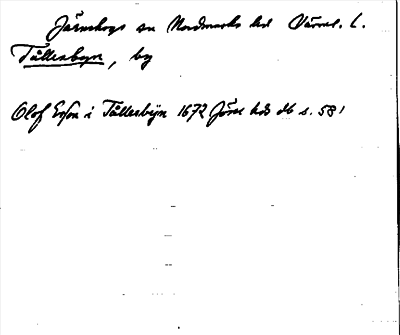 Järnskogs sn Nordmarks hd Värml. l.
Tållerbyn, by
Olof Ersson i Tållerbÿn 1672 Jöse hds db s. 581